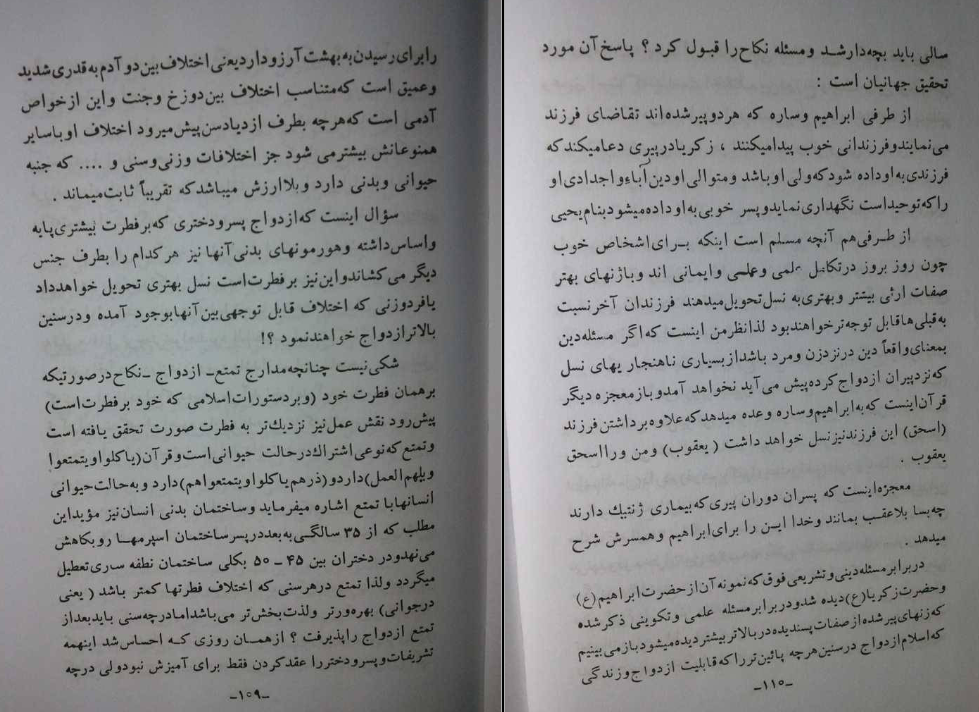 رابرای رسیدن به بهشت آرزو دارد یعنی اختلاف بین دو آدم به قدری شدید
و عمیق است که متناسب اختلاف بین دوزخ و جنت و این از خواص
آدمی است که هرچه بطرف ازدیاد سن پیش میرود اختلاف او با سایر
همنوعانش بیشتر می شود جز اختلافات وزنی و سنی و .... که جنبه
حیوانی و بدنی دارد و بلا ارزش میباشد که تقریباً ثابت میماند .
سؤال اینست که ازدواج پسر و دختری که بر فطرت بیشتری پایه
و اساس داشته و هورمونهای بدنی آنها نیز هر کدام را بطرف جنس
دیگر می کشاند و این نیز بر فطرت است نسل بهتری تحویل خواهد داد
یا فرد وزنی که اختلاف قابل توجهی بین آنها بوجود آمده و در سنین
بالاتر ازدواج خواهند نمود ؟!
شکی نیست چنانچه مدارج تمتع ـ ازدواج ـ نکاح در صورتیکه
بر همان فطرت خود (و بر دستورات اسلامی که خود بر فطرت است)
پیش رود نقش عمل نیز نزدیک تر به فطرت صورت تحقق یافته است
و تمتع که نوعی اشتراک در حالت حیوانی است و قرآن (یاکلوا و یتمتعوا
و یلهم العمل) دارد و (ذرهم یاکلوا و یتمتعوا هم) دارد و به حالت حیوانی
انسانها با تمتع اشاره میفرماید و ساختمان بدنی انسان نیز مؤید این
مطلب که از ۳۵ سالگی به بعد در پسر ساختمان اسپرمها رو بکاهش
می نهد و در دختران بین ۴۵ ـ ۵۰ بکلی ساختمان نطفه سری تعطیل
میگردد و لذا تمتع در هر سنی که اختلاف فطرتها کمتر باشد ( یعنی
در جوانی) بهره ور تر و لذت بخش تر می باشد اما در چه سنی باید بعد از
تمتع ازدواج را پذیرفت ؟ از همان روزی که احساس شد اینهمه
تشریفات و پسر و دختر را عقد کردن فقط برای آمیزش نبود ولی در چه
ـ۱۰۹ـ
سالی باید بچه دار شد و مسئله نکاح را قبول کرد ؟ پاسخ آن مورد
تحقیق جهانیان است :
از طرفی ابراهیم و ساره که هر دو پیر شده اند تقاضای فرزند
می نمایند و فرزندانی خوب پیدا میکنند ، زکریا در پیری دعا میکند که
فرزندی به او داده شود که ولی او باشد و متوالی او دین آباء و اجدادی او
را که توحید است نگهداری نماید و پسر خوبی به او داده میشود بنام یحیی
از طرفی هم آنچه مسلم است اینکه برای اشخاص خوب
چون روز بروز در تکامل علمی و عملی و ایمانی اند و باز نهای بهتر
صفات ارثی بیشتر و بهتری به نسل تحویل میدهند فرزندان آخر نسبت
به قبلی ها قابل توجه تر خواهند بود لذا نظر من اینست که اگر مسئله دین
بمعنای واقعاً دین در نزد زن و مرد باشد از بسیاری ناهنجار یهای نسل
که نزد پیران ازدواج کرده پیش می آید نخواهد آمد و باز معجزه دیگر
قرآن اینست که به ابراهیم و ساره وعده میدهد که علاوه بر داشتن فرزند
(اسحق) این فرزند نیز نسل خواهد داشت ( یعقوب) و من ورا اسحق
یعقوب .
معجزه اینست که پسران دوران پیری که بیماری ژنتیک دارند
چه بسا بلا عقب بمانند و خدا ایسن را برای ابراهیم و همسرش شرح
میدهد .
در برابر مسئله دینی و تشریعی فوق که نمونه آن از حضرت ابراهیم (ع)
و حضرت زکریا (ع) دیده شد و در برابر مسئله علمی و تکوینی ذکر شده
که زنهای پیر شده از صفات پسندیده در بالاتر بیشتر دیده میشود باز می بینیم
که اسلام ازدواج در سنین هرچه پائین تر را که قابلیت ازدواج و زندگی
ـ۱۱۰ـ